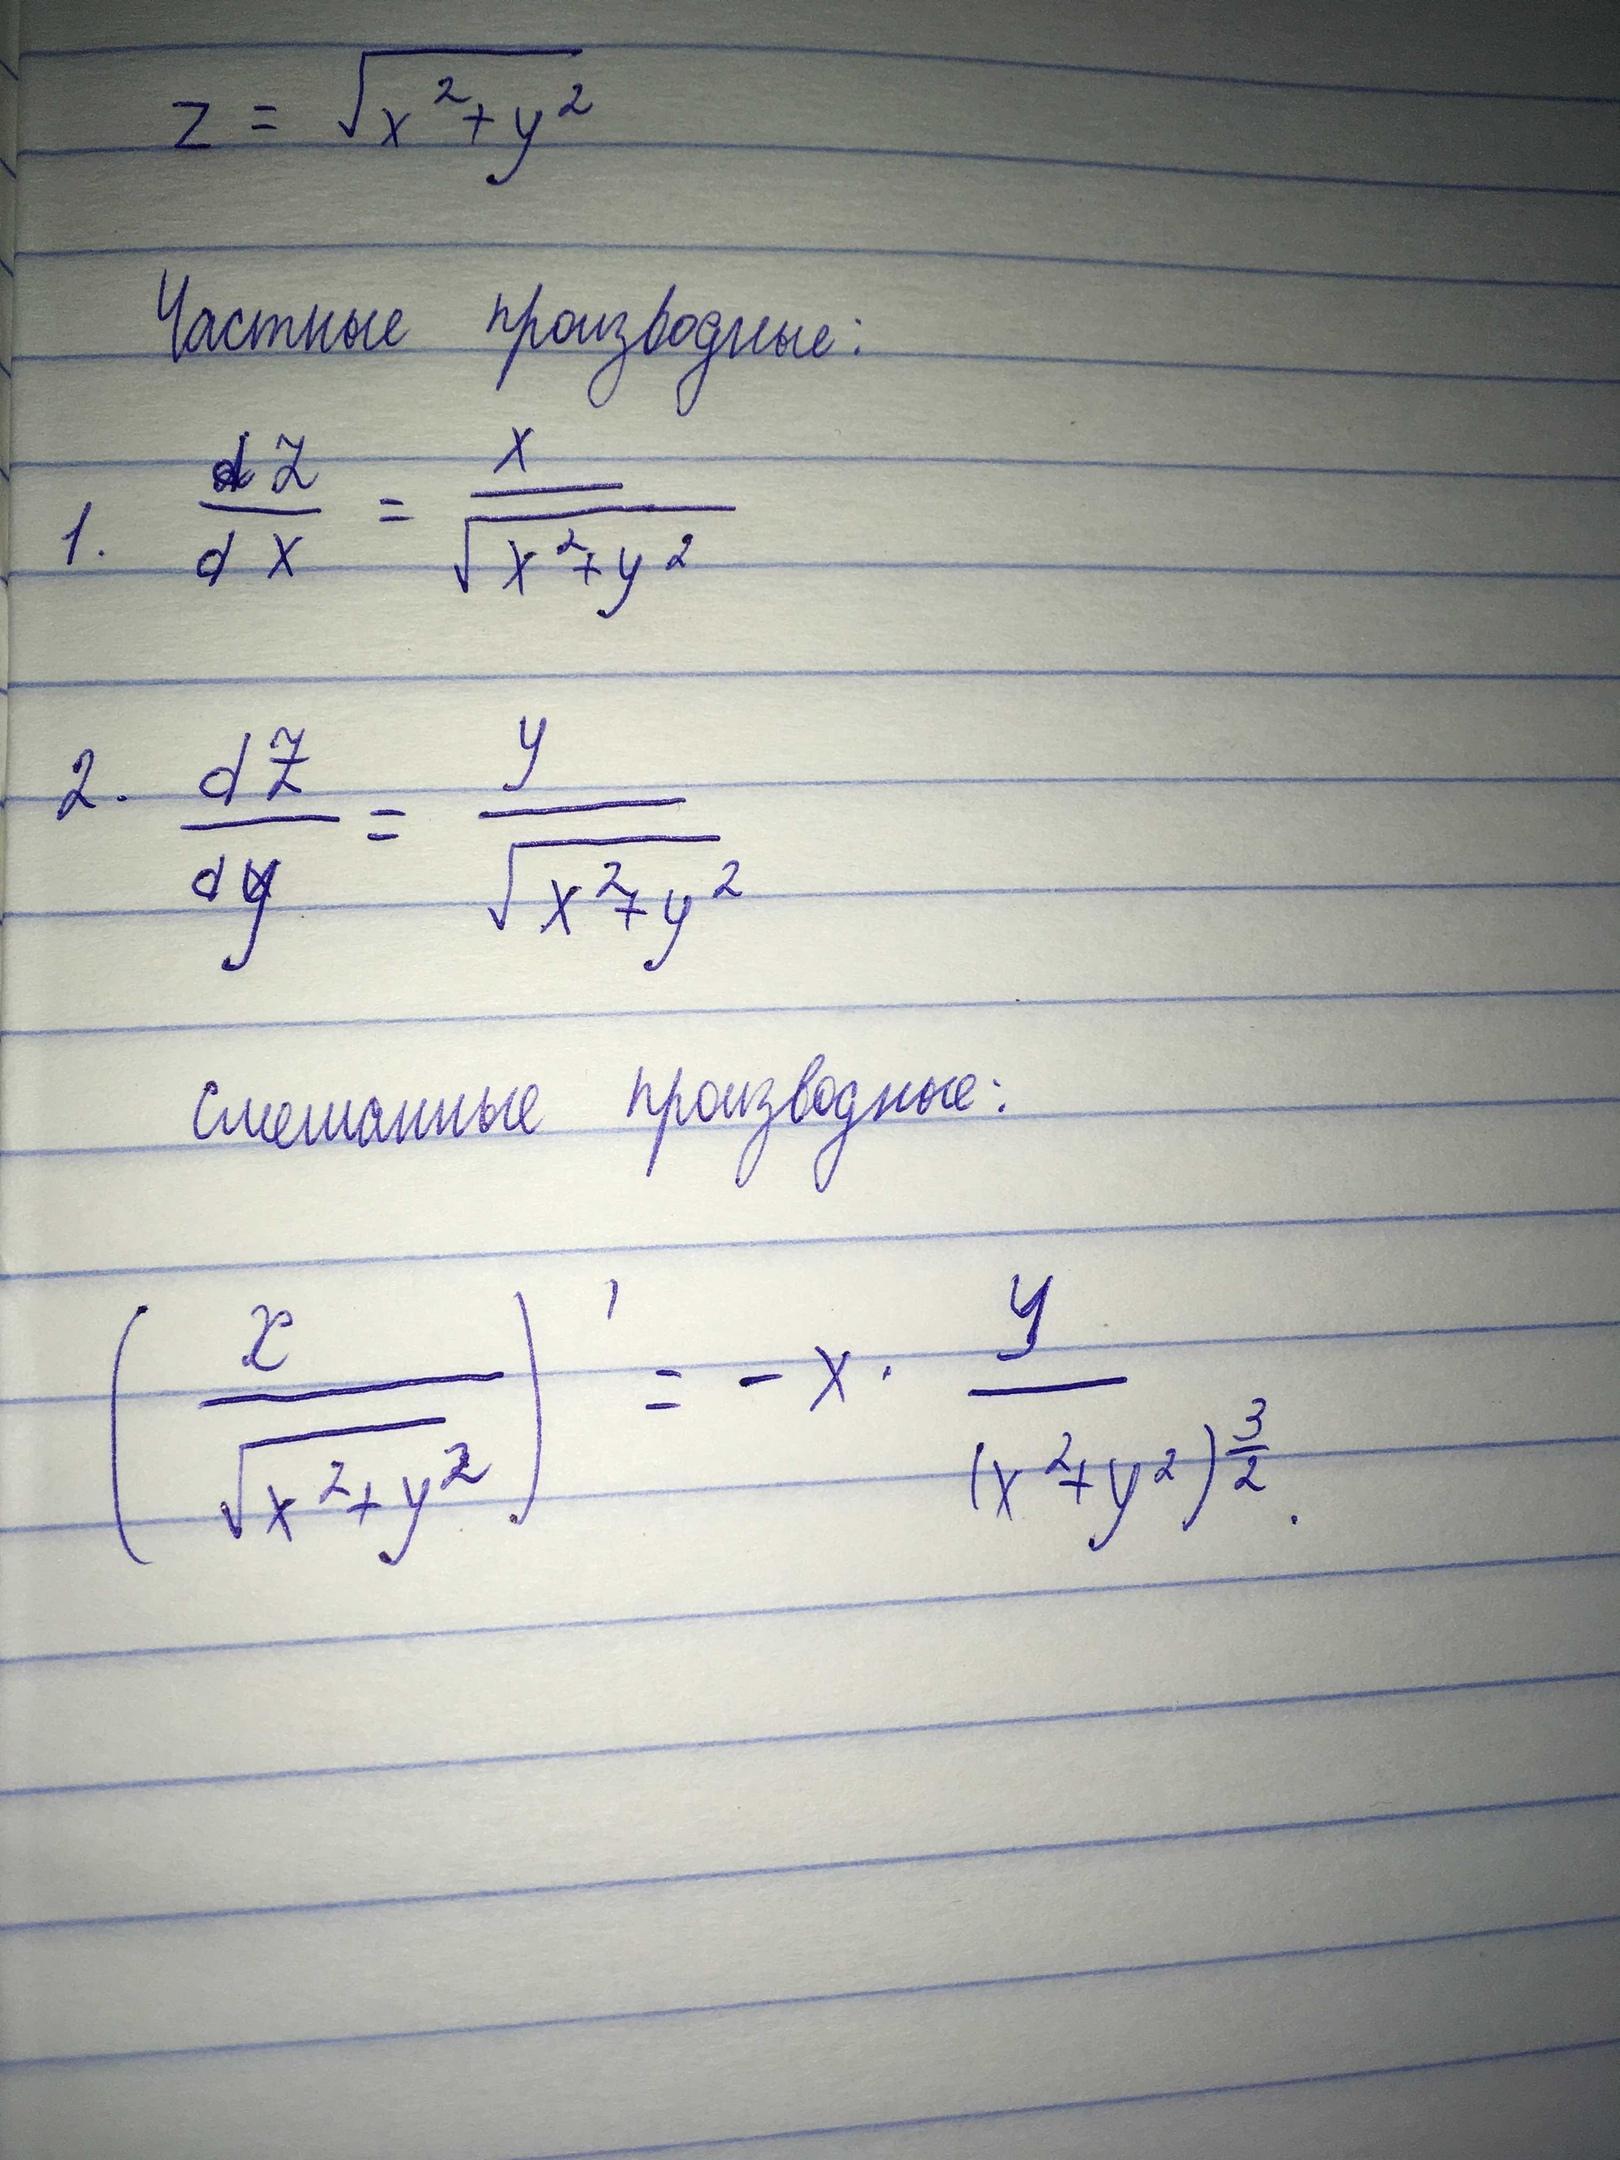 z = √x²+y²
Частные производные:
1. dz/dx = x/√x²+y²
2. dz/dy = y/√x²+y²
Смешанные производные:
(x/√x²+y²)' = -x · y/(x²+y²)^3/2.